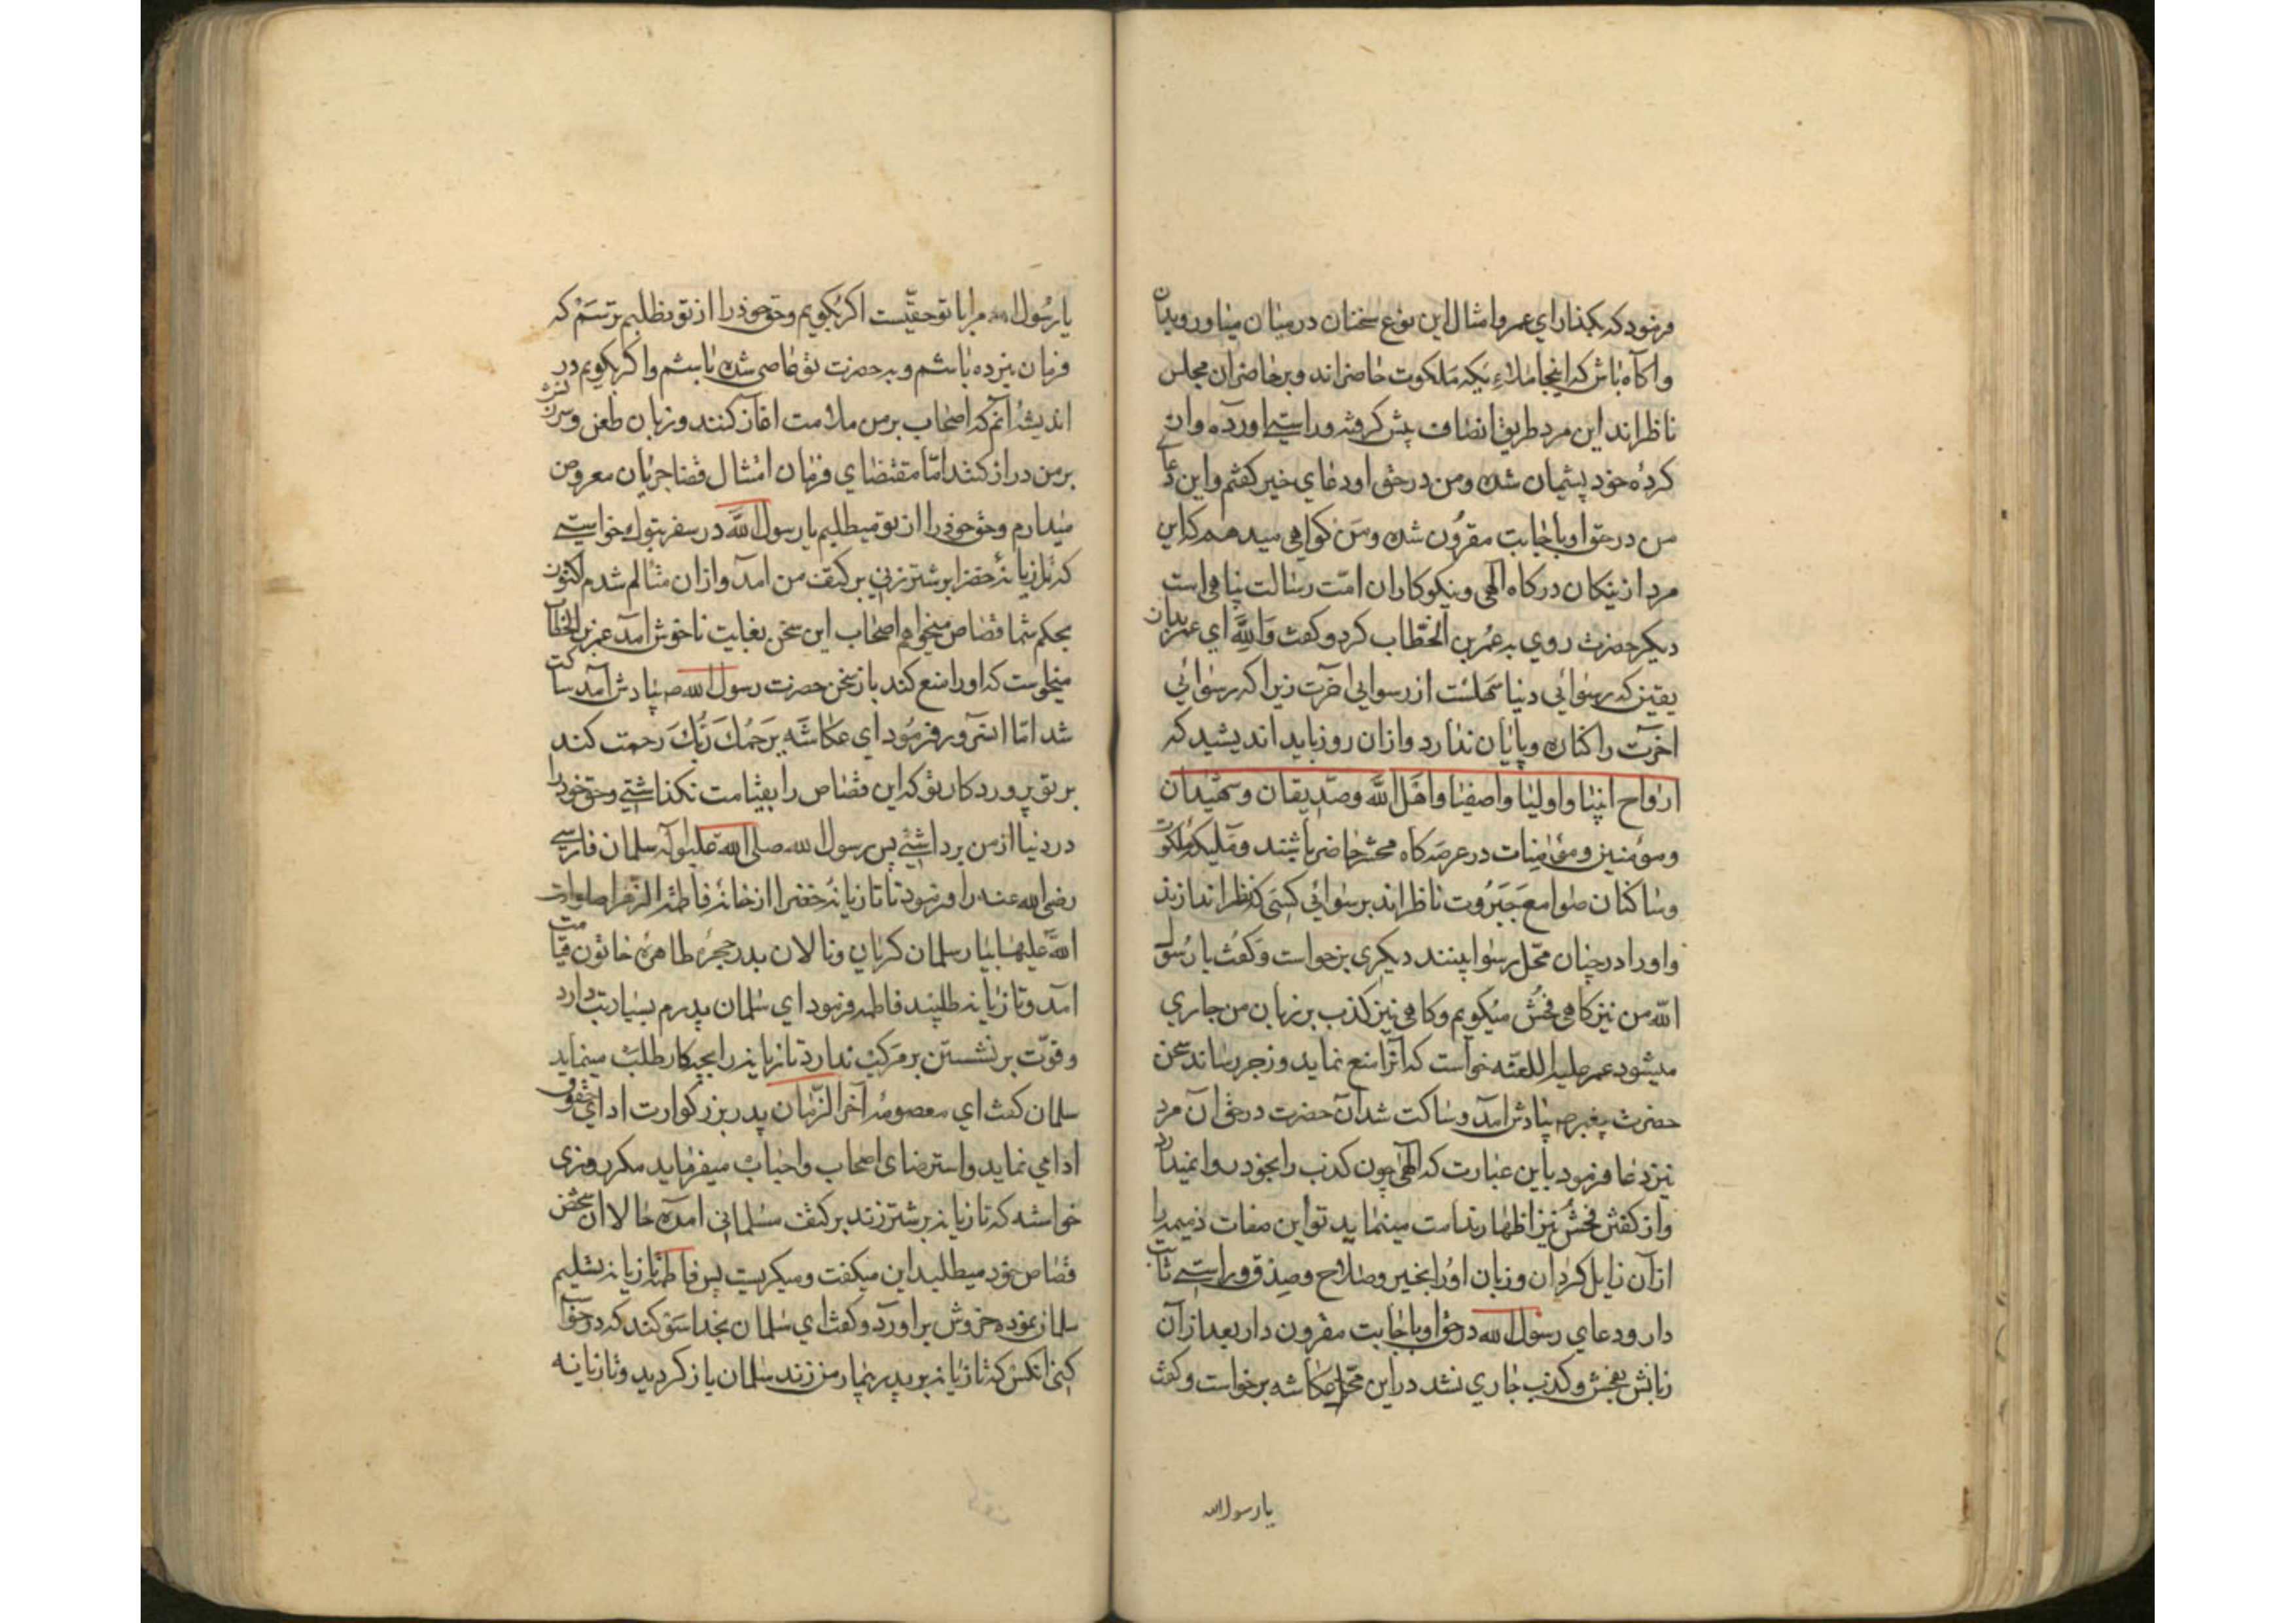 فرمود که بکذار ای عمر و امثال این نوع سخنان در میان میاور و بدان
و اکاه باش که اینجا ملاءیکه ملکوت حاضراند و بر حاضران مجلس
ناظراند این مرد طریق انصاف پیش کرفته و راستی اورده و از
کردۀ خود پشیمان شده و من در حق او دعای خیر کفتم و این دعای
من در حق او باجابت مقرون شده و من کواهی میدهم که این
مرد از نیکان درکاه الهی و نیکوکاران امت رسالت پناهی است
دیکر حضرت روی به عمر بن الخطاب کرد و کفت والله ای عمر بدان
یقین که رسوائی دنیا سهلست از رسوایی اخرت زیرا که رسوائی
اخرت را کناره و پایان ندارد و ازان روز باید اندیشید که
ارواح انبیا و اولیا و اصفیا و اهل الله و صدیقان و شهیدان
و مؤمنین و مؤمنات در عرصه کاه محشر حاضر باشند و ملیکه ملکوت
و ساکنان صوامع جبروت ناظراند بر رسوائی کسی که نظر اندازند
و او را در چنان محل رسوا بینند دیکری برخواست و کفت یا رسول
الله من نیز کاهی فحش میکویم و کاهی نیز کذب بر زبان من جاری
میشود عمر علیه اللعنه خواست که انرا منع نماید و زجر رساند سخن
حضرت پیغمبر ص بیادش امد و ساکت شد آن حضرت در حق ان مرد
نیز دعا فرمود باین عبارت که الهی چون کذب را بخود روا نمیدارد
و از کفتن فحش نیز اظهار ندامت مینماید تو این صفات ذمیمه را
از آن زایل کردان و زبان او را بخیر و صلاح و صدق و راستی ثابت
دار و دعای رسول الله در حق او باجابت مقرون دار بعد از آن
زبانش بفحش و کذب جاری نشد در این محل عکاشه برخواست و کفت
یا رسول الله
یا رسول الله مرا با تو حقیست اکر بکویم و حق خود را از تو نطلبم ترسم که
فرمان نبرده باشم و به حضرت تو عاصی شده باشم و اکر بکویم در
اندیشۀ آنم که اصحاب بر من ملامت اغاز کنند و زبان طعن و سرزنش
بر من دراز کنند اما مقتضای فرمان امتثال قضا جریان معروض
میدارم و حق خود را از تو میطلبم یا رسول الله در سفر تبوک خواستی
که تازیانۀ حضرا بر شتر زنی بر کتف من امد و ازان متالم شدم اکنون
بحکم شما قصاص میخواهم اصحاب این سخن بغایت ناخوش امد عمر بن الخطاب
میخواست که او را منع کند باز سخن حضرت رسول الله ص بیادش آمد ساکت
شد اما انسرور فرمود ای عکاشه یرحمک ربک رحمت کند
بر تو پروردکار تو که این قصاص را بقیامت نکذاشتی و حق خود را
در دنیا از من برداشتی پس رسول الله صلی الله علیه و آله سلمان فارسی
رضی الله عنه را فرمود تا تازیانۀ حضرا از خانۀ فاطمة الزهرا صلوات
الله علیها بیارد سلمان کریان و نالان بدر حجرۀ طاهرۀ خاتون قیامت
امد و تازیانه طلبید فاطمه فرمود ای سلمان پدرم بسیار تب دارد
و قوت بر نشستن بر مرکب ندارد تازیانه را بجه کار طلب مینماید
سلمان کفت ای معصومۀ آخر الزمان پدر بزرکوارت ادای حقوق
ادا می نماید و استرضای اصحاب و احباب میفرماید مکر روزی
خواسته که تازیانه بر شتر زند بر کتف مسلمانی امده حالا ان شخص
قصاص خود میطلبد این میکفت و میکریست پس فاطمه تازیانه تسلیم
سلمان نموده خروش براورد و کفت ای سلمان بخدا سوکند که درخواست
کنی از انکس که تازیانه بر پدر بیمار من نزند سلمان باز کردید و تازیانه